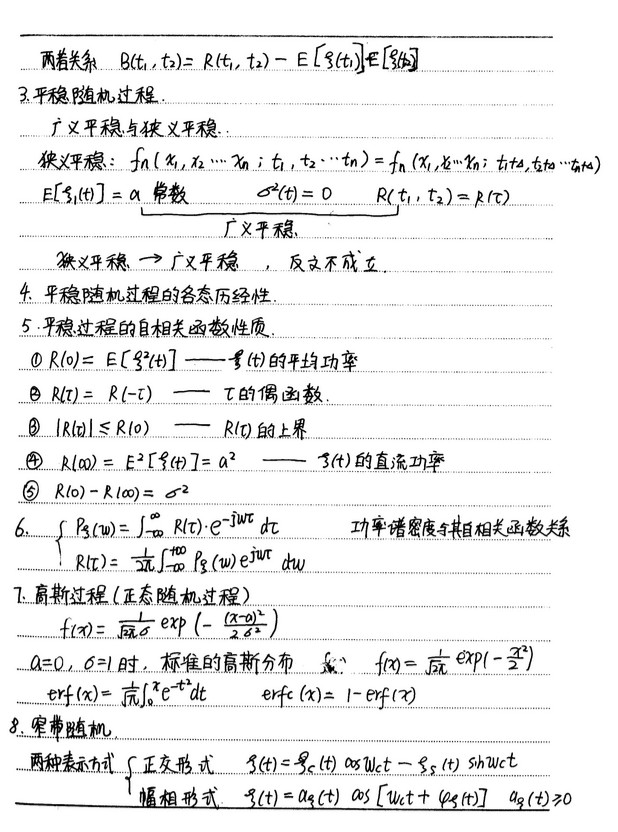 两着关系 B(t₁, t₂) = R(t₁, t₂) − E[ξ(t₁)]·E[ξ(t₂)]
3. 平稳随机过程.
广义平稳与狭义平稳.
狭义平稳: fn(x₁, x₂ ⋯ xn ; t₁, t₂ ⋯ tn) = fn(x₁, x₂ ⋯ xn ; t₁+Δ, t₂+Δ ⋯ tn+Δ)
E[ξ₁(t)] = a 常数 σ²(t) = 0 R(t₁, t₂) = R(τ)
广义平稳
狭义平稳 → 广义平稳 , 反之不成立.
4. 平稳随机过程的各态历经性.
5. 平稳过程的自相关函数性质.
① R(0) = E[ξ²(t)] —— ξ(t)的平均功率
② R(τ) = R(−τ) —— τ的偶函数.
③ |R(τ)| ≤ R(0) —— R(τ)的上界
④ R(∞) = E²[ξ(t)] = a² —— ξ(t)的直流功率
⑤ R(0) − R(∞) = σ²
6. { Pξ(w) = ∫₋∞^∞ R(τ)·e^(−jwτ) dτ 功率谱密度与其自相关函数关系
R(τ) = 1/2π ∫₋∞^+∞ Pξ(w) e^(jwτ) dw
7. 高斯过程 (正态随机过程)
f(x) = 1/(√2π σ) exp(−(x−a)²/2σ²)
a=0, σ=1时, 标准的高斯分布 f(x) = 1/√2π exp(−x²/2)
erf(x) = 1/√π ∫₀^x e^(−t²) dt erfc(x) = 1−erf(x)
8. 窄带随机
两种表示方式 { 正交形式 ξ(t) = ξc(t) cos Wct − ξs(t) sin Wct
幅相形式 ξ(t) = aξ(t) cos[Wct + φξ(t)] aξ(t) ≥ 0